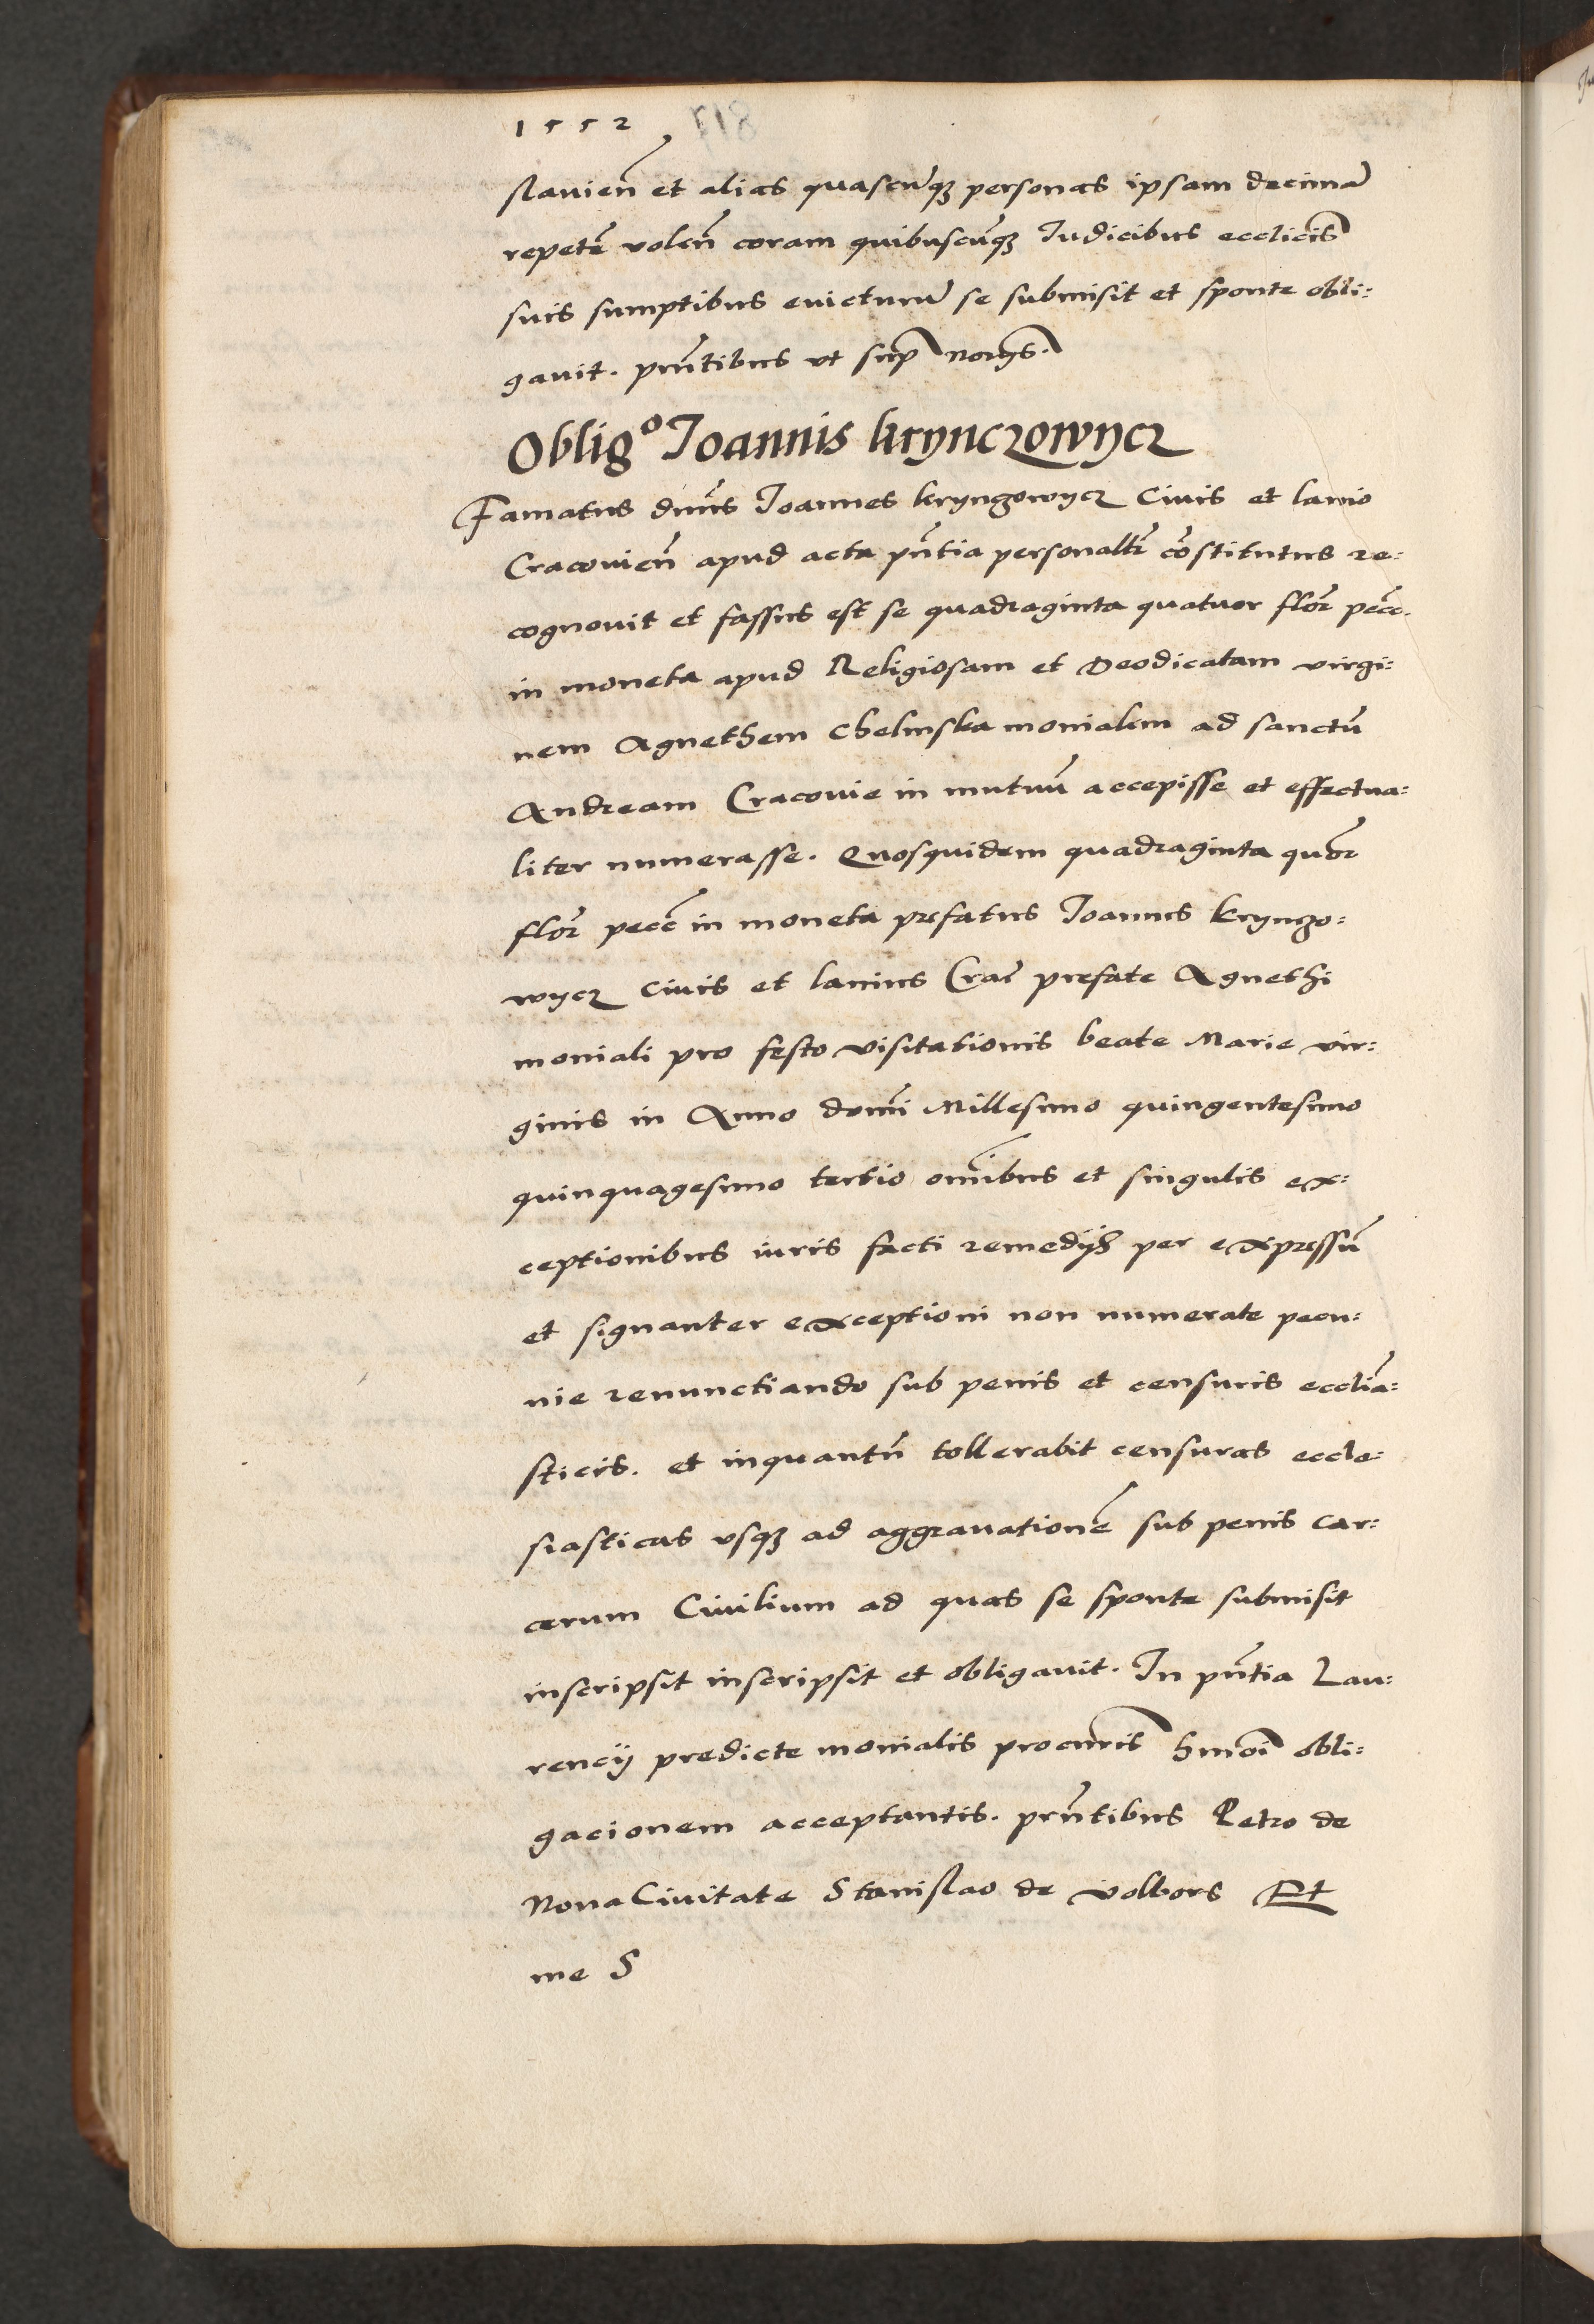 1552
slauien̄ et alias quascu̅q3 personas ipsam decima̅
repete̅ volen̅ coram quibuscu̅q3 Iudicibus ecclicis̅
suis sumptibus euicturu̅ se submisit et sponte obli:
gauit. pn̅tibus vt sup̅ norys̅.
Obligº Ioannis krynczowycz
Famatus dn̅us Ioannes kryngowycz Ciuis et lanio
Cracouien̅ apud acta pn̅tia personalr̅ co̅stitutus re:
cognouit et fassus est se quadraginta quatuor flor̅ pec̅c.
in moneta apud Religiosam et Deodicatam virgi:
nem Agnethem Chelmska monialem ad sanctu̅
Andream Cracouie in mutuu̅ accepisse et effectua:
liter numerasse. Quosquidem quadraginta quo̅r
flor̅ pecc̅ in moneta prefatus Ioannes kryngo:
wycz Ciuis et lanius Crac̅ prefate Agnethi
moniali pro festo visitationis beate Marie vir:
ginis in Anno domi̅ Millesimo quingentesimo
quinquagesimo tertio omi̅bus et singulis ex:
ceptionibus iuris facti remedijs per expressu̅
et signanter exceptioni non numerate pecu:
nie renunctiando sub penis et censuris ecclia̅:
sticis. et inquantu̅ tollerabit censuras eccle:
siasticas vsq3 ad aggrauatione̅ sub penis car:
cerum Ciuilium ad quas se sponte submisit
inscripsit inscripsit et obligauit. In pn̅tia Lau:
rencij predicte monialis procuris̅ hmoi̅ obli:
gacionem acceptantis. prn̅tibus Petro de
Noua Ciuitate Stanislao de volbors Et
me S